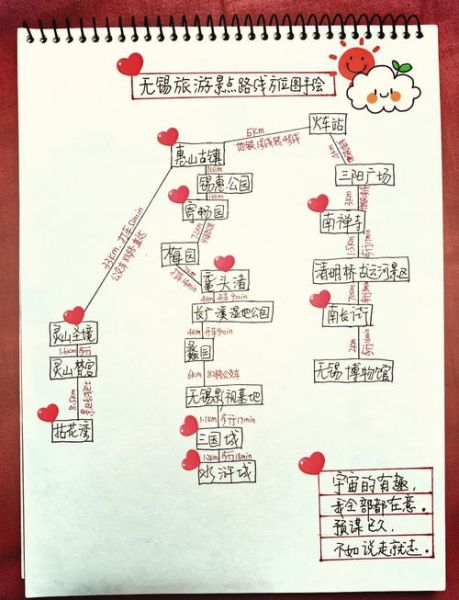 无锡旅游景点路线方位图手绘
火车站
5km
地铁1号线转4号线
惠山古镇
三阳广场
锡惠公园
寄畅园
南禅寺
梅园
清明桥古运河景区
37km 打车50min
公交车 直达
鼋头渚
4km 开车9min
长广溪湿地公园
南长街
4km 开车9min
灵山圣境
蠡园
1.6km 步行
灵山梵宫
6km 82路公交车
无锡博物馆
无锡影视基地
8.5km
1.1km 步行17min
拈花湾
三国城
1.2km 步行18min
水浒城
宇宙的有趣,
我全部都在意。
预谋已久,
不如说走就走。